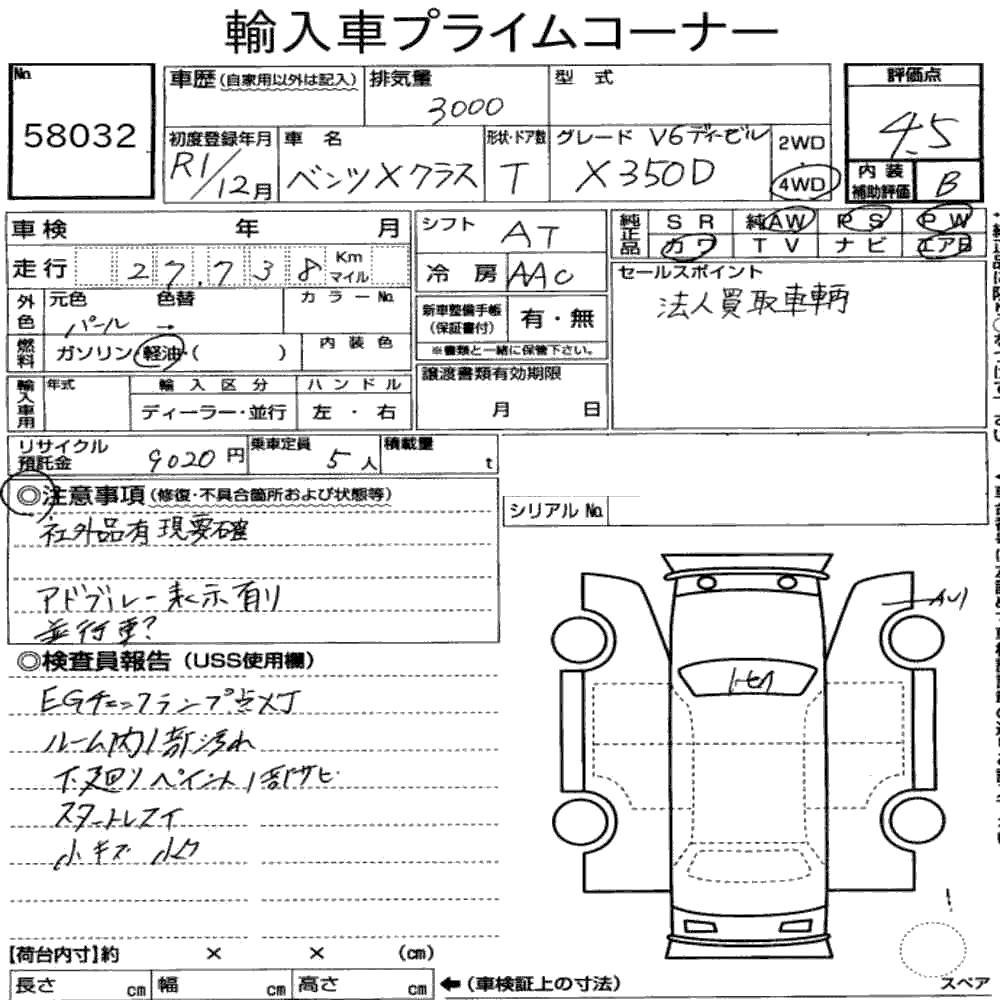 輸入車プライムコーナー
No.
58032
車歴 (自家用以外は記入)
排気量
3000
型 式
評価点
4.5
初度登録年月
R1/12月
車 名
ベンツXクラス
形状・ドア数
T
グレード V6ディーゼル
X350D
2WD
4WD
内 装
補助評価
B
車検 年 月
走行 27,738 Km マイル
シフト AT
冷 房 AAC
純正品
SR 純AW PS PW
カワ TV ナビ エアB
セールスポイント
法人買取車輌
外色
元色 色替
パール →
カラーNo.
新車整備手帳
(保証書付)
有・無
※書類と一緒に保管下さい。
燃料
ガソリン・軽油・( )
内 装 色
輸入車用
年式
輸 入 区 分
ディーラー・並行
ハ ン ド ル
左 ・ 右
譲渡書類有効期限
月 日
リサイクル
預託金
9020 円
乗車定員
5 人
積載量
t
シリアル No.
◎注意事項 (修復・不具合箇所および状態等)
社外品有 現車要確
アドブルー表示有り
並行車?
◎検査員報告 (USS使用欄)
EGチェックランプ点灯
ルーム内1部汚れ
下廻りペイント1部サビ
小キズ
【荷台内寸】約 × × (cm)
長さ cm 幅 cm 高さ cm ←(車検証上の寸法)
スペア